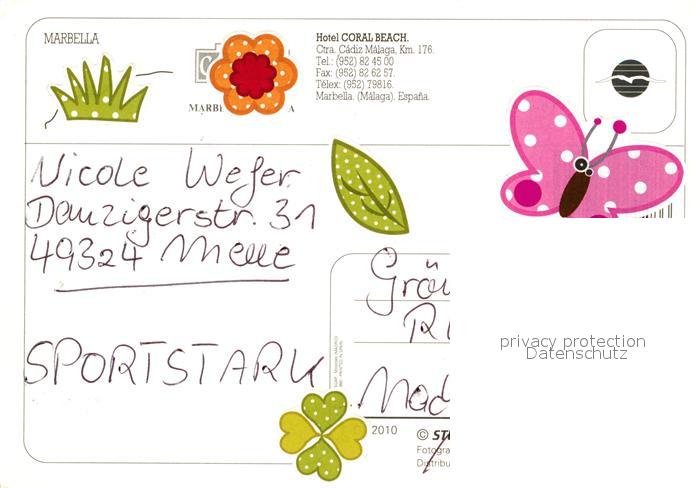 MARBELLA
Hotel CORAL BEACH.
Ctra. Cádiz Málaga, Km. 176.
Tel.: (952) 82 45 00
Fax: (952) 82 62 57.
Télex: (952) 79816.
Marbella. (Málaga). España.
Nicole Wefer
Danzigerstr. 31
49324 Melle
SPORTSTARK
2010
©
privacy protection
Datenschutz